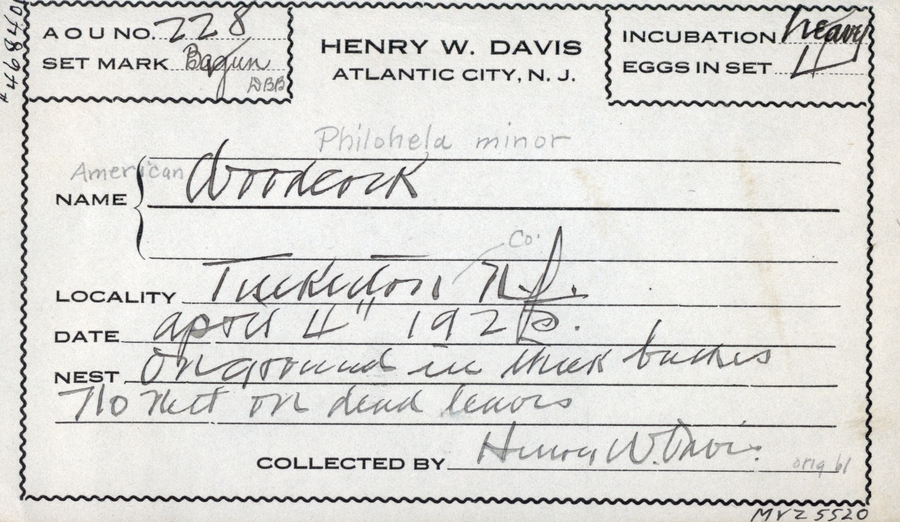 #46840
A O U NO. 228
SET MARK Bagun
DBB
HENRY W. DAVIS
ATLANTIC CITY, N. J.
INCUBATION heavy
EGGS IN SET 4
Philohela minor
American
NAME Woodcock
Co.
LOCALITY Tuckerton N.J.
DATE april 4" 192
NEST On ground in thick bushes
No nest on dead leaves
COLLECTED BY Henry W. Davis.
orig bl
MVZ 5520